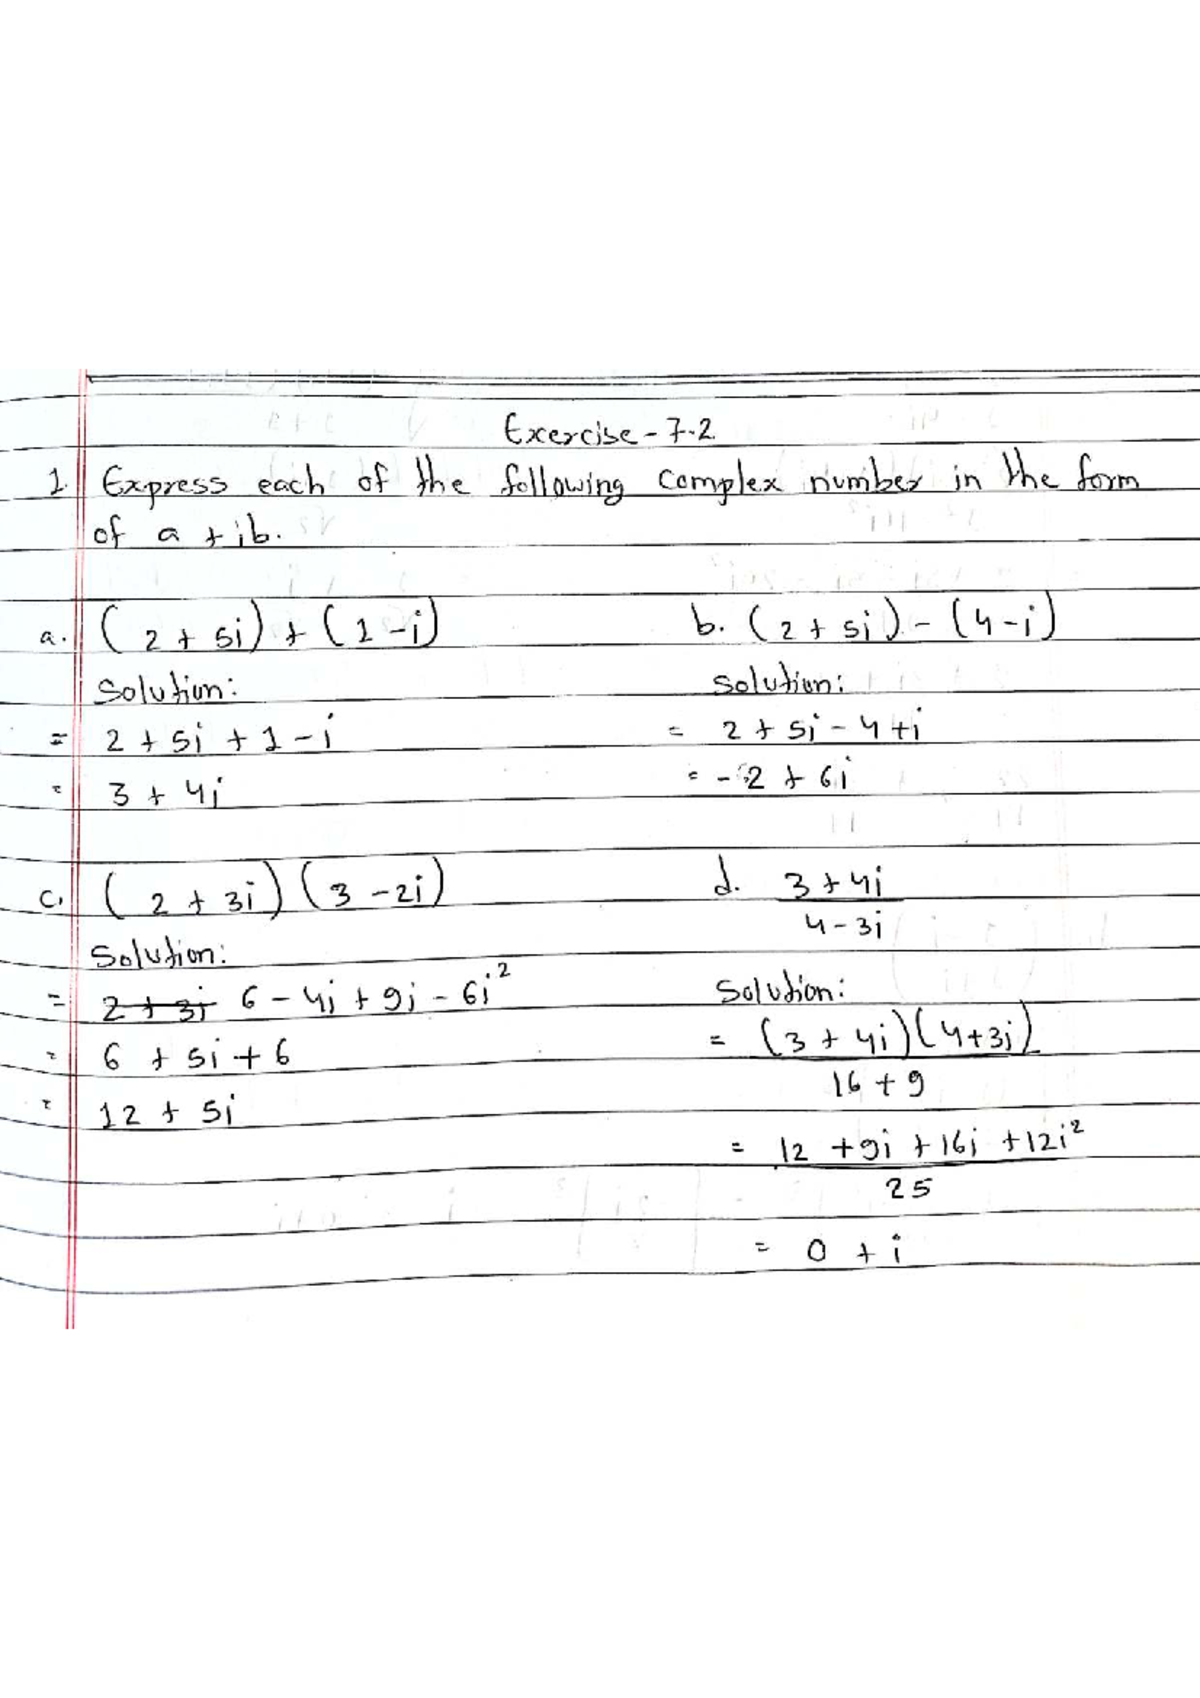 Exercise - 7.2
1. Express each of the following complex number in the form
of a + ib.
a. (2 + 5i) + (1 - i)
Solution:
= 2 + 5i + 1 - i
= 3 + 4i
b. (2 + 5i) - (4 - i)
solution:
= 2 + 5i - 4 + i
= - 2 + 6i
c. (2 + 3i) (3 - 2i)
Solution:
= 2 + 3i 6 - 4i + 9i - 6i²
= 6 + 5i + 6
= 12 + 5i
d. 3 + 4i
4 - 3i
Solution:
= (3 + 4i)(4+3i)
16 + 9
= 12 + 9i + 16i + 12i²
25
= 0 + i